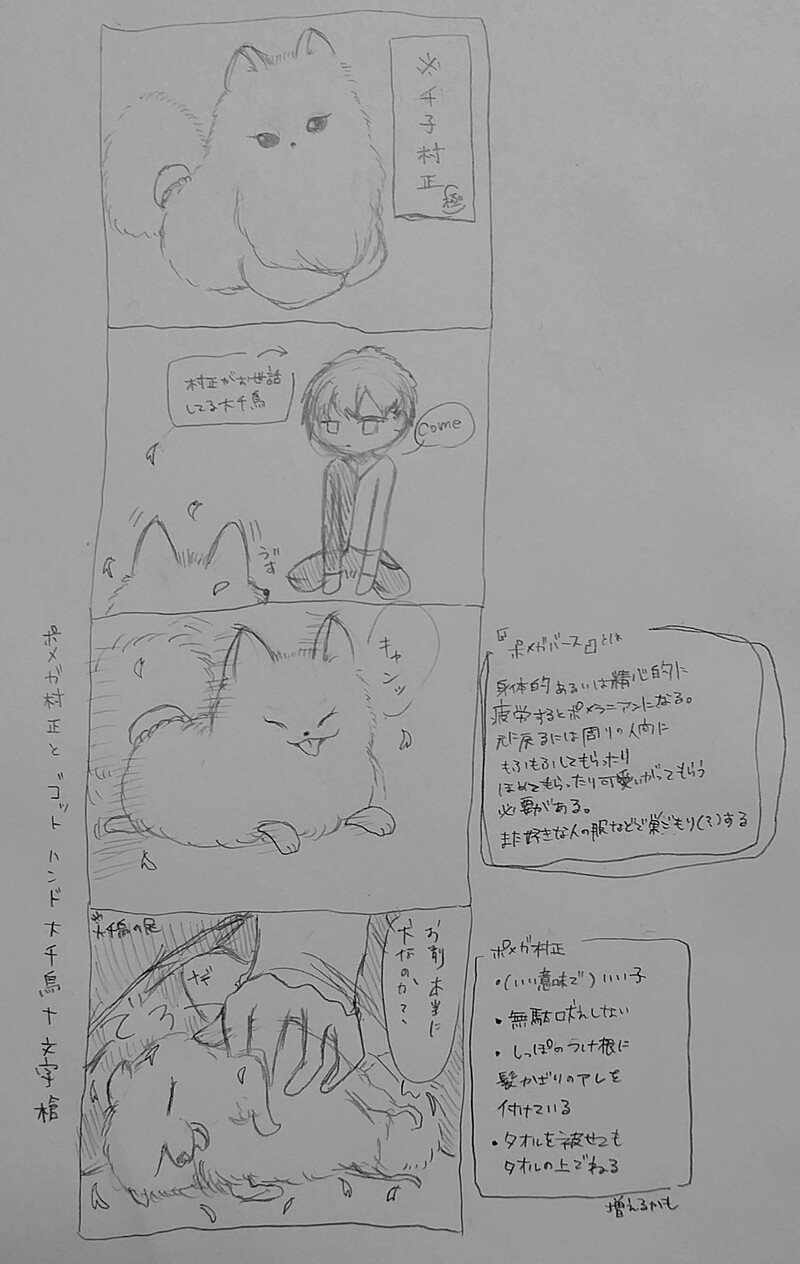 ※千子村正
(極)
村正がお世話
してる大千鳥
Come
うず
キャンッ
※大千鳥の足
お前本当に
犬なのか？、
ポメガ村正とゴットハンド大千鳥十文字槍
『ポメガバース』とは
身体的あるいは精心的に
疲労するとポメラニアンになる。
元に戻るには周りの人間に
もふもふしてもらったり
ほめてもらったり可愛いがってもらう
必要がある。
また好きな人の服などで巣ごもり(?)する
ポメガ村正
・(いい意味で)いい子
・無駄吠えしない
・しっぽのつけ根に
髪かざりのアレを
付けている
・タオルを被せても
タオルの上でねる
増えるかも